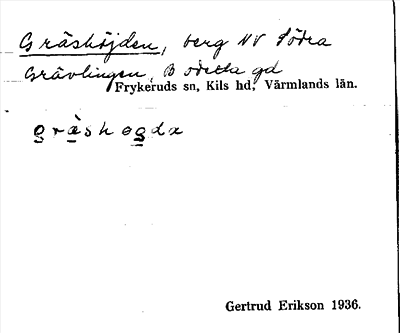 Gräshöjden, berg NV Södra
Grävlingen, B odetta gd
Frykeruds sn, Kils hd, Värmlands län.
gräshøgda
Gertrud Erikson 1936.